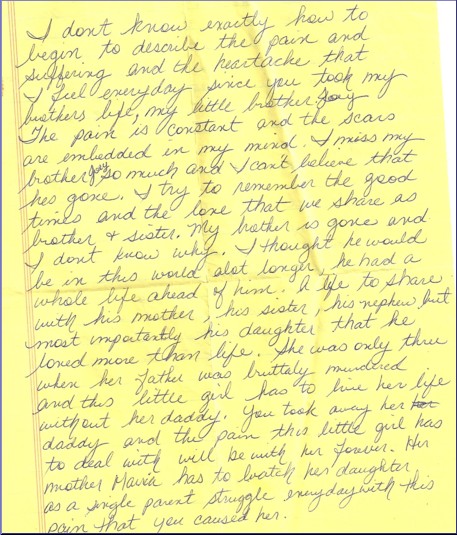 I don't know exactly how to
begin to describe the pain and
suffering and the heartache that
I feel everyday since you took my
brothers life, my little brother Joey
The pain is constant and the scars
are embedded in my mind. I miss my
brother Joey so much and I can't believe that
hes gone. I try to remember the good
times and the love that we share as
brother & sister. My brother is gone and
I don't know why. I thought he would
be in this world alot longer, he had a
whole life ahead of him. A life to share
with his mother, his sister, his nephew, but
most importantly his daughter that he
loved more than life. She was only three
when her father was bruttaly murdered
and this little girl has to live her life
without her daddy. You took away her her
daddy and the pain this little girl has
to deal with will be with her forever. Her
mother Maria has to watch her daughter,
as a single parent struggle everyday with this
pain that you caused her.